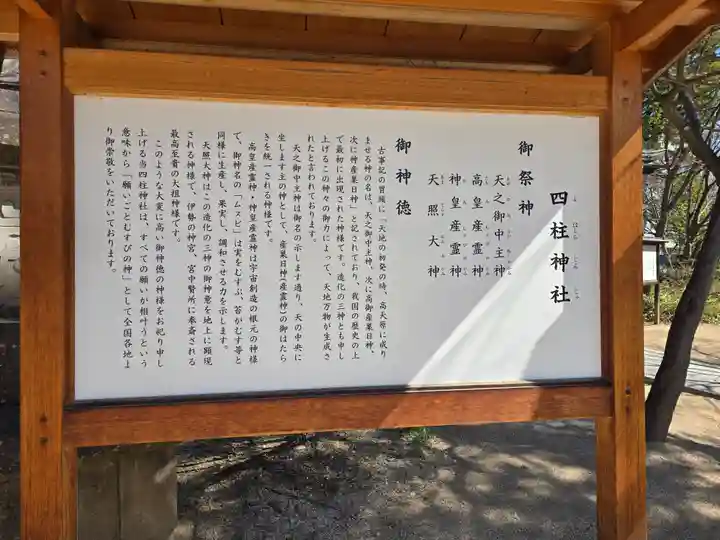 四柱神社
しはしらじんじゃ
御祭神
天之御中主神
高皇産霊神
神皇産霊神
天照大神
御神徳
古事記の冒頭に「天地の初発の時、高天原に成り
ませる神の名は、天之御中主神、次に高御産巣日神、
次に神産巣日神」と記されており、我国の歴史の上
で最初に出現された神様です。造化の三神とも申し
上げるこの神々の御力によって、天地万物が生成さ
れたと言われております。
天之御中主神は御名の示します通り、天の中央に
坐します主の神として、産巣日神(産霊神)の御はたら
きを統一される神様です。
高皇産霊神・神皇産霊神は宇宙創造の根元の神様
で、御神名の「ムスビ」は実をむすぶ、苔がむす等と
同様に生産し、果実し、調和させる力を示します。
天照大神はこの造化の三神の御神意を地上に顕現
される神様で、伊勢の神宮、宮中賢所に奉斎される
最高至貴の大祖神様です。
このような大変に高い御神徳の神様をお祀り申し
上げる当四柱神社は、すべての願いが相叶うという
意味から「願いごとむすびの神」として全国各地よ
り御崇敬をいただいております。